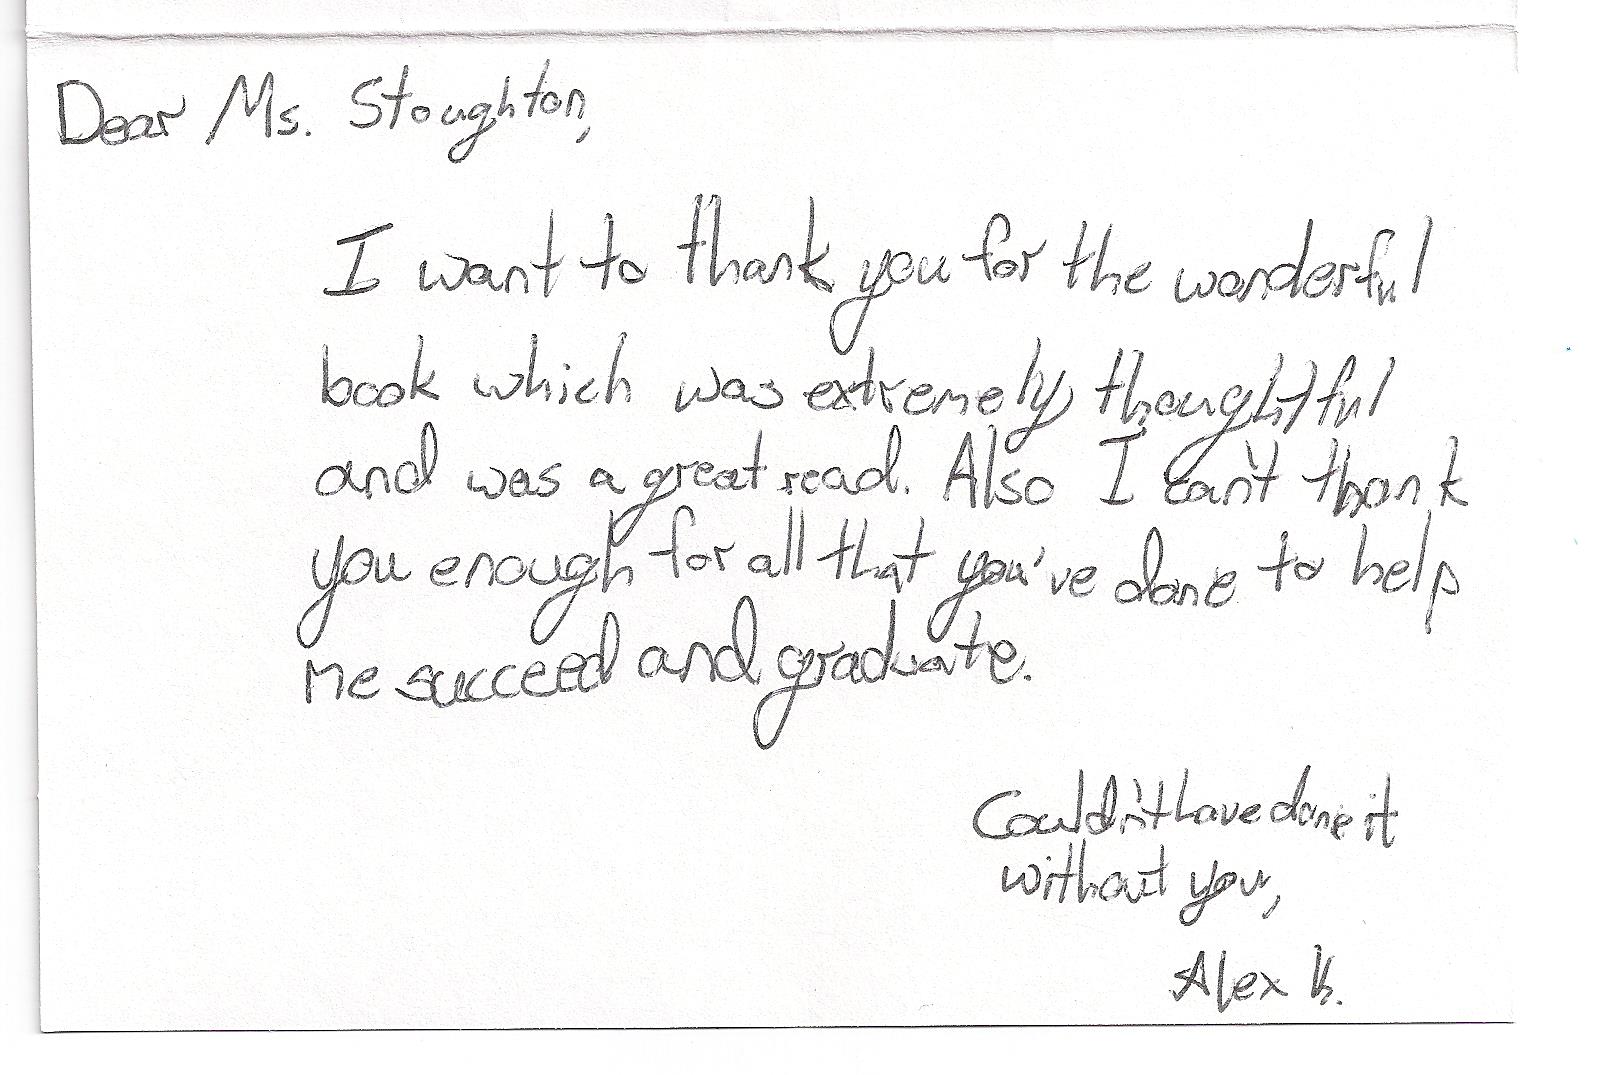 Dear Ms. Stoughton,
I want to thank you for the wonderful
book which was extremely thoughtful
and was a great read. Also I can't thank
you enough for all that you've done to help
me succeed and graduate.
Couldn't have done it
without you,
Alex K.